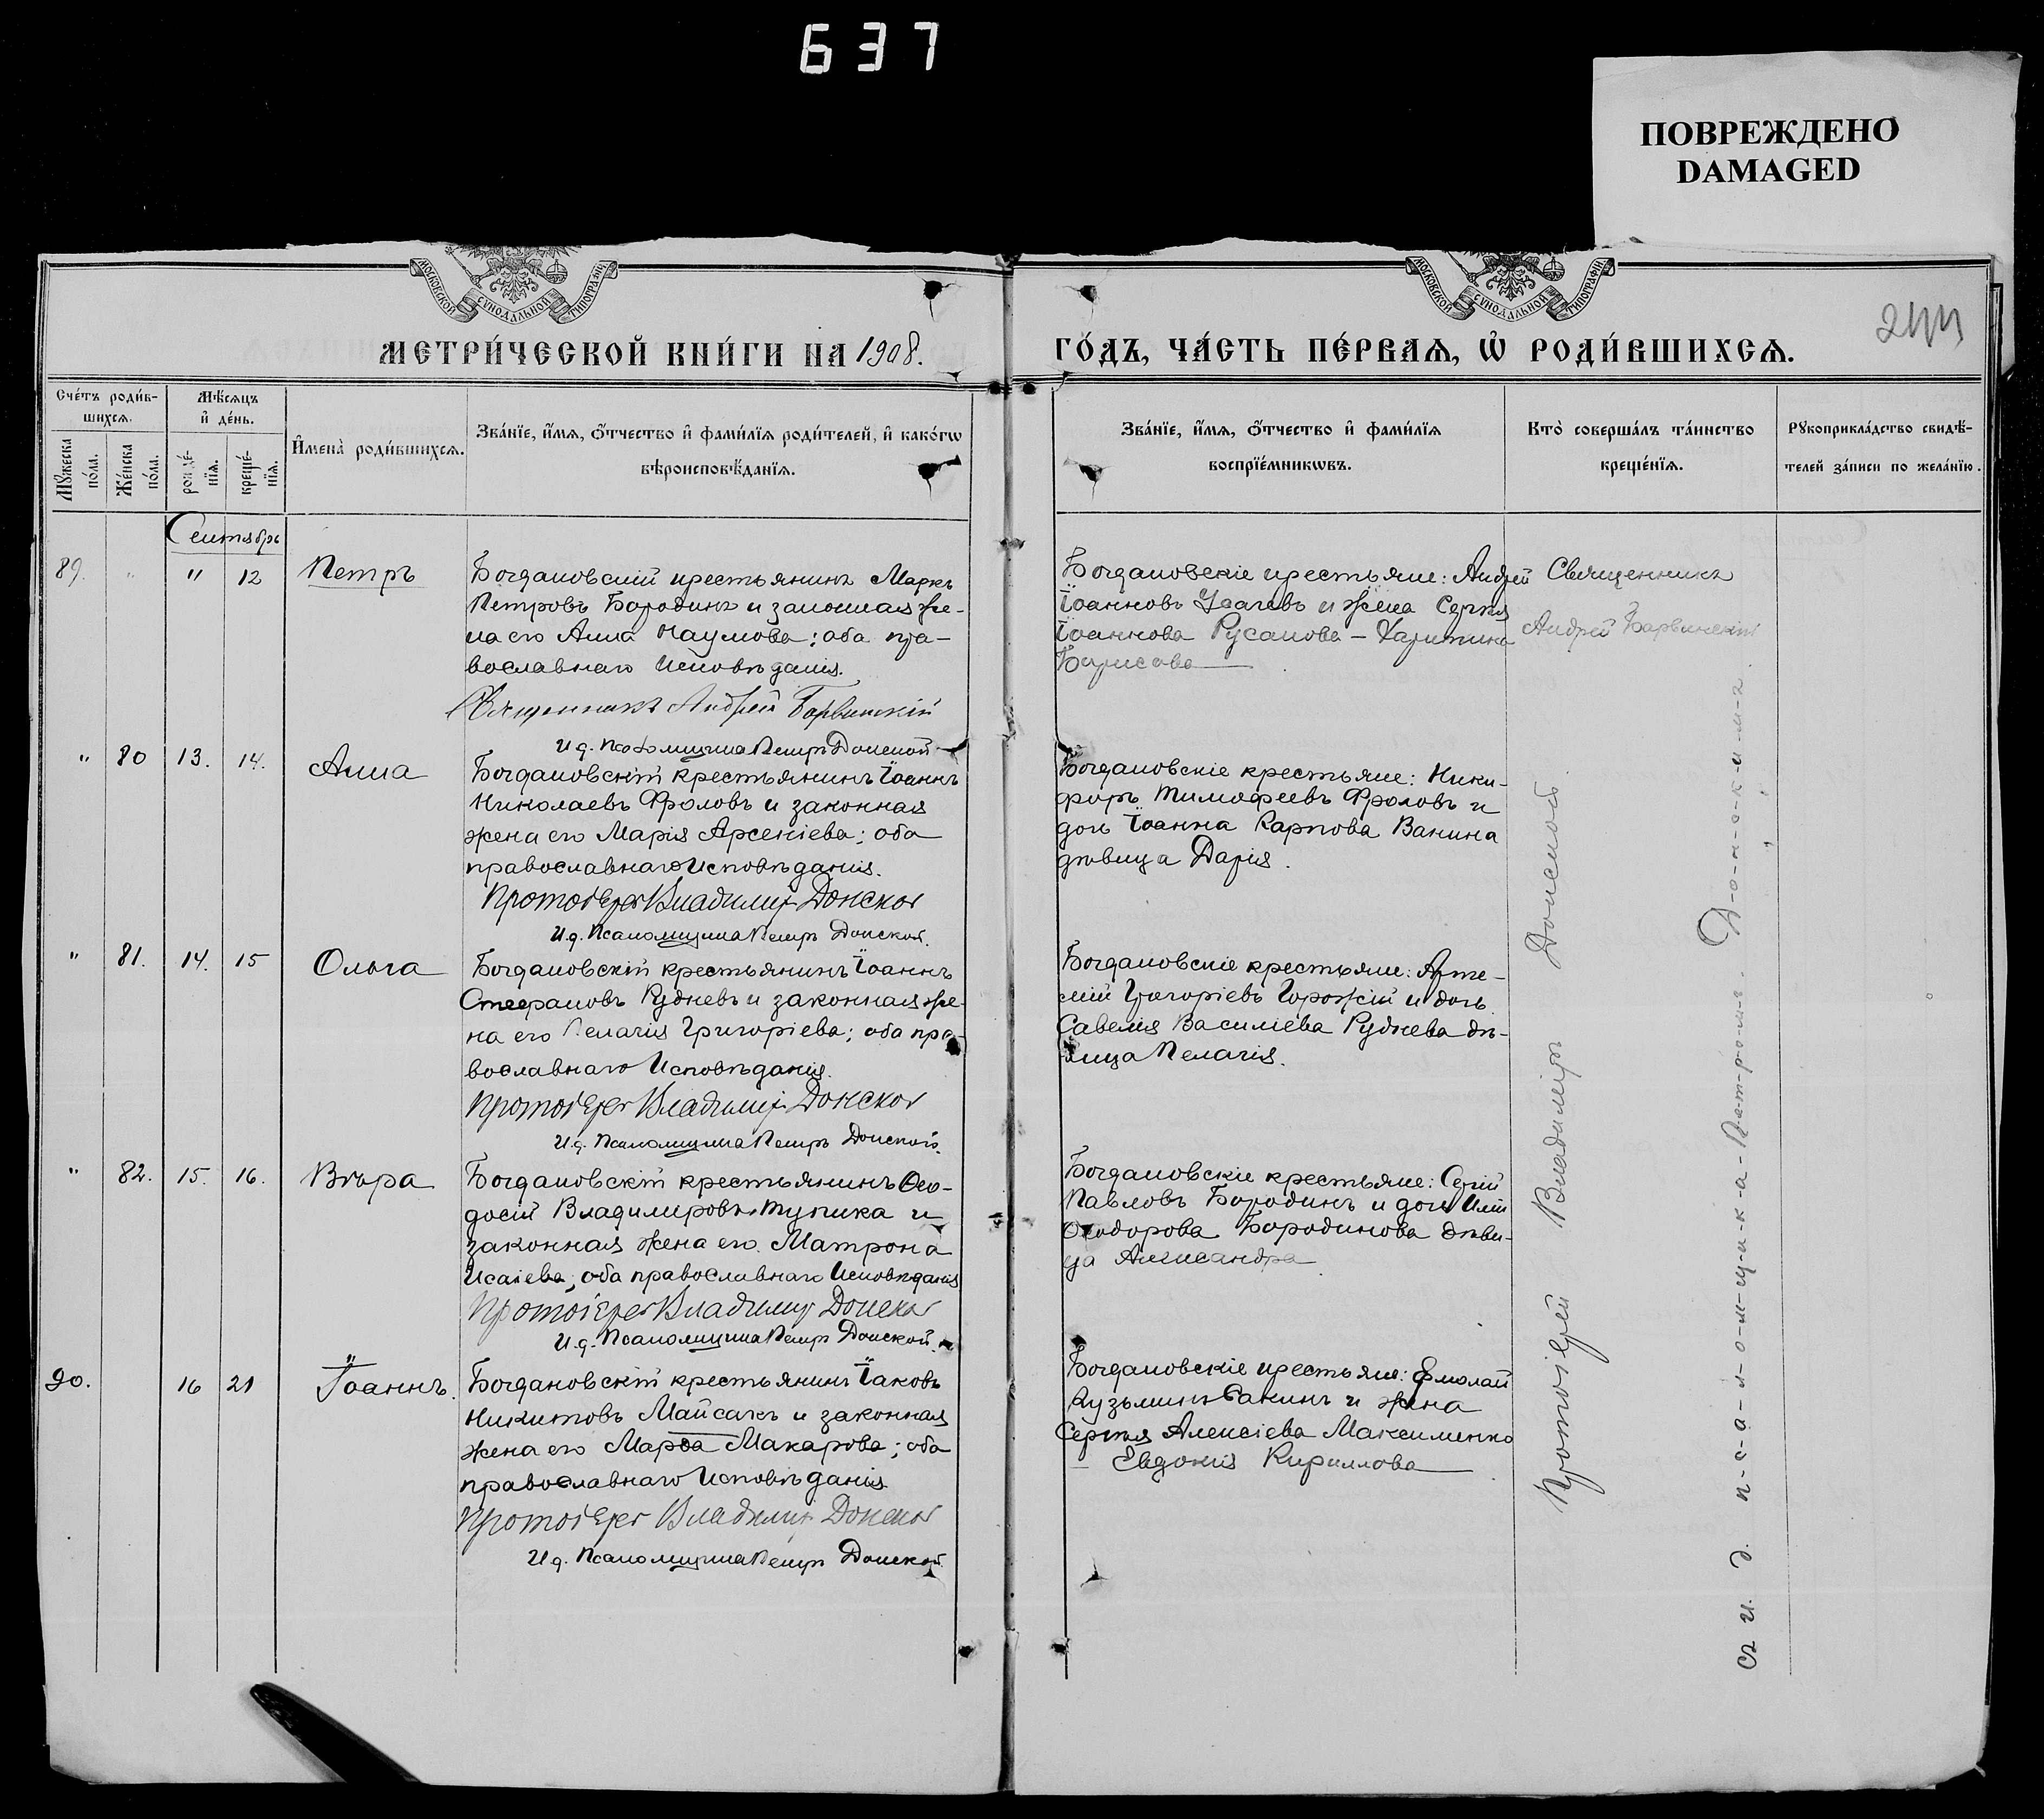 637
ПОВРЕЖДЕНО
DAMAGED
МОСКОВСКОЙ СѴНОДАЛЬНОЙ ТИПОГРАФІИ
МОСКОВСКОЙ СѴНОДАЛЬНОЙ ТИПОГРАФІИ
244
МЕТРИ́ЧЕСКОЙ КНИ́ГИ НА 1908.
ГО́ДЪ, ЧА́СТЬ ПЕ́РВАѦ, Ѽ РОДИ́ВШИХСѦ.
Сче́тъ роди́в-
шихсѧ.
Мꙋ́жеска по́ла.
Же́нска по́ла.
Мѣ́сѧцъ
и҆ де́нь.
рожде́-
нїѧ.
креще́-
нїѧ.
И҆мена̀ роди́вшихсѧ.
Зва́нїе, и҆́мѧ, ѻ҆́тчество и҆ фами́лїѧ роди́телей, и҆ како́гѡ
вѣроисповѣ́данїѧ.
Зва́нїе, и҆́мѧ, ѻ҆́тчество и҆ фами́лїѧ
воспрїе́мникѡвъ.
Кто̀ соверша́лъ та́инство
креще́нїѧ.
Рꙋкоприкла́дство свидѣ́-
телей за́писи по жела́нїю.
Сентябрь
89. " " 12 Петръ
Богдановскій крестьянинъ Маркъ
Петровъ Бородинъ и законная же-
на его Анна Наумова; оба пра-
вославнаго Исповѣданія.
Священникъ Андрей Барвинскій
И.д. Псаломщика Петръ Донской
Богдановскіе крестьяне: Андрей
Іоанновъ Усачевъ и жена Сергія
Іоаннова Русанова - Харитина
Борисова
Священникъ
Андрей Барвинскій
" 80 13. 14. Анна
Богдановскій крестьянинъ Іоаннъ
Николаевъ Фроловъ и законная
жена его Марія Арсеніева; оба
православнаго Исповѣданія.
Протоіерей Владиміръ Донской
И.д. Псаломщика Петръ Донской.
Богдановскіе крестьяне: Ники-
форъ Тимофеевъ Фроловъ и
дочь Іоанна Карпова Ванина
дѣвица Дарія.
" 81. 14. 15 Ольга
Богдановскій крестьянинъ Іоаннъ
Стефановъ Рудневъ и законная же-
на его Пелагія Григоріева; оба пра-
вославнаго Исповѣданія.
Протоіерей Владиміръ Донской
И.д. Псаломщика Петръ Донской.
Богдановскіе крестьяне: Арте-
мій Григоріевъ и дочь
Савелія Василіева Руднева дѣ-
вица Пелагія.
" 82. 15. 16. Вѣра
Богдановскій крестьянинъ Ѳео-
досій Владиміровъ Тупика и
законная жена его Матрона
Исаіева; оба православнаго Исповѣданія
Протоіерей Владиміръ Донской
И.д. Псаломщика Петръ Донской.
Богдановскіе крестьяне: Сергій
Павловъ Бородинъ и дочь Иліи
Ѳеодорова Бородинова дѣви-
ца Александра
90. " 16 21 Іоаннъ.
Богдановскій крестьянинъ Іаковъ
Никитовъ Майсакъ и законная
жена его Марѳа Макарова; оба
православнаго Исповѣданія
Протоіерей Владиміръ Донской
И.д. Псаломщика Петръ Донской.
Богдановскіе крестьяне: Ермолай
Кузьминъ и жена
Сергія Алексіева Максименко
— Евдокія Кириллова
Протоіерей Владиміръ Донской.
съ и. д. п-с-а-л-о-м-щ-и-к-а - П-е-т-р-о-м-ъ. Д-о-н-с-к-и-м-ъ.